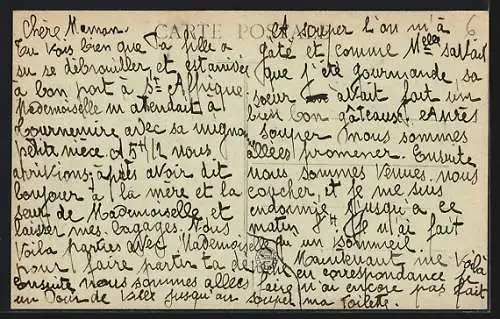 6
CARTE POSTALE
Chère Maman
Tu vois bien que ta fille a
su se débrouiller et est arrivée
à bon port à St Affrique
Mademoiselle m'attendait à
Tournemire avec sa mignonne
petite nièce à 5H 1/2 nous
arrivions après avoir dit
bonjour à la mère et la
sœur de Mademoiselle et
laisser mes bagages. Nous
voila parties avec Mademoiselle
pour faire partir ta dé
ensuite nous sommes allées
un tour de ville jusqu'au souper
A souper l'on m'a
gâté et comme Melle savait
que j'été gourmande, sa
sœur avait fait un
bien bon gâteaux. Après
souper nous sommes
allées promener. Ensuite
nous sommes venues nous
coucher, et je me suis
endormie jusqu'à ce
matin 8H je n'ai fait
qu'un sommeil.
Maintenant me voilà
en correspondance je
n'ai encore pas fait
ma toilette.